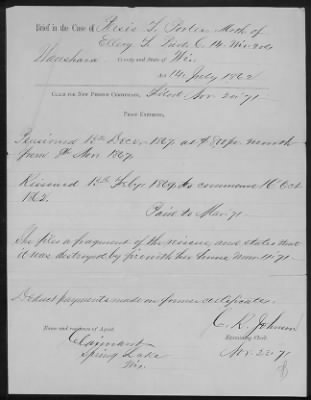 Brief in the Case of Arexis L. Porter Moth of
Ellery L. Priv C. 14. Wis Vols
Waushara County and State of Wis.
Act 14 July 1862
CLAIM FOR NEW PENSION CERTIFICATE, Filed Nov. 20 '71
PROOF EXHIBITED,
Pensioned 13th Decr 1867 at $8.00 pr. month
from 7th Nov 1867.
Reissued 13th Feby. 1869 to commence 16 Oct
1862.
Paid to Mar '71
She files a fragment of the reissue and states that
it was destroyed by fire with her house 11 '71
Deduct payments made on former certificates.
C. R. Johnson
Examining Clerk.
Name and residence of Agent.
Claimant
Spring Lake
Wis.
Nov. 22 '71